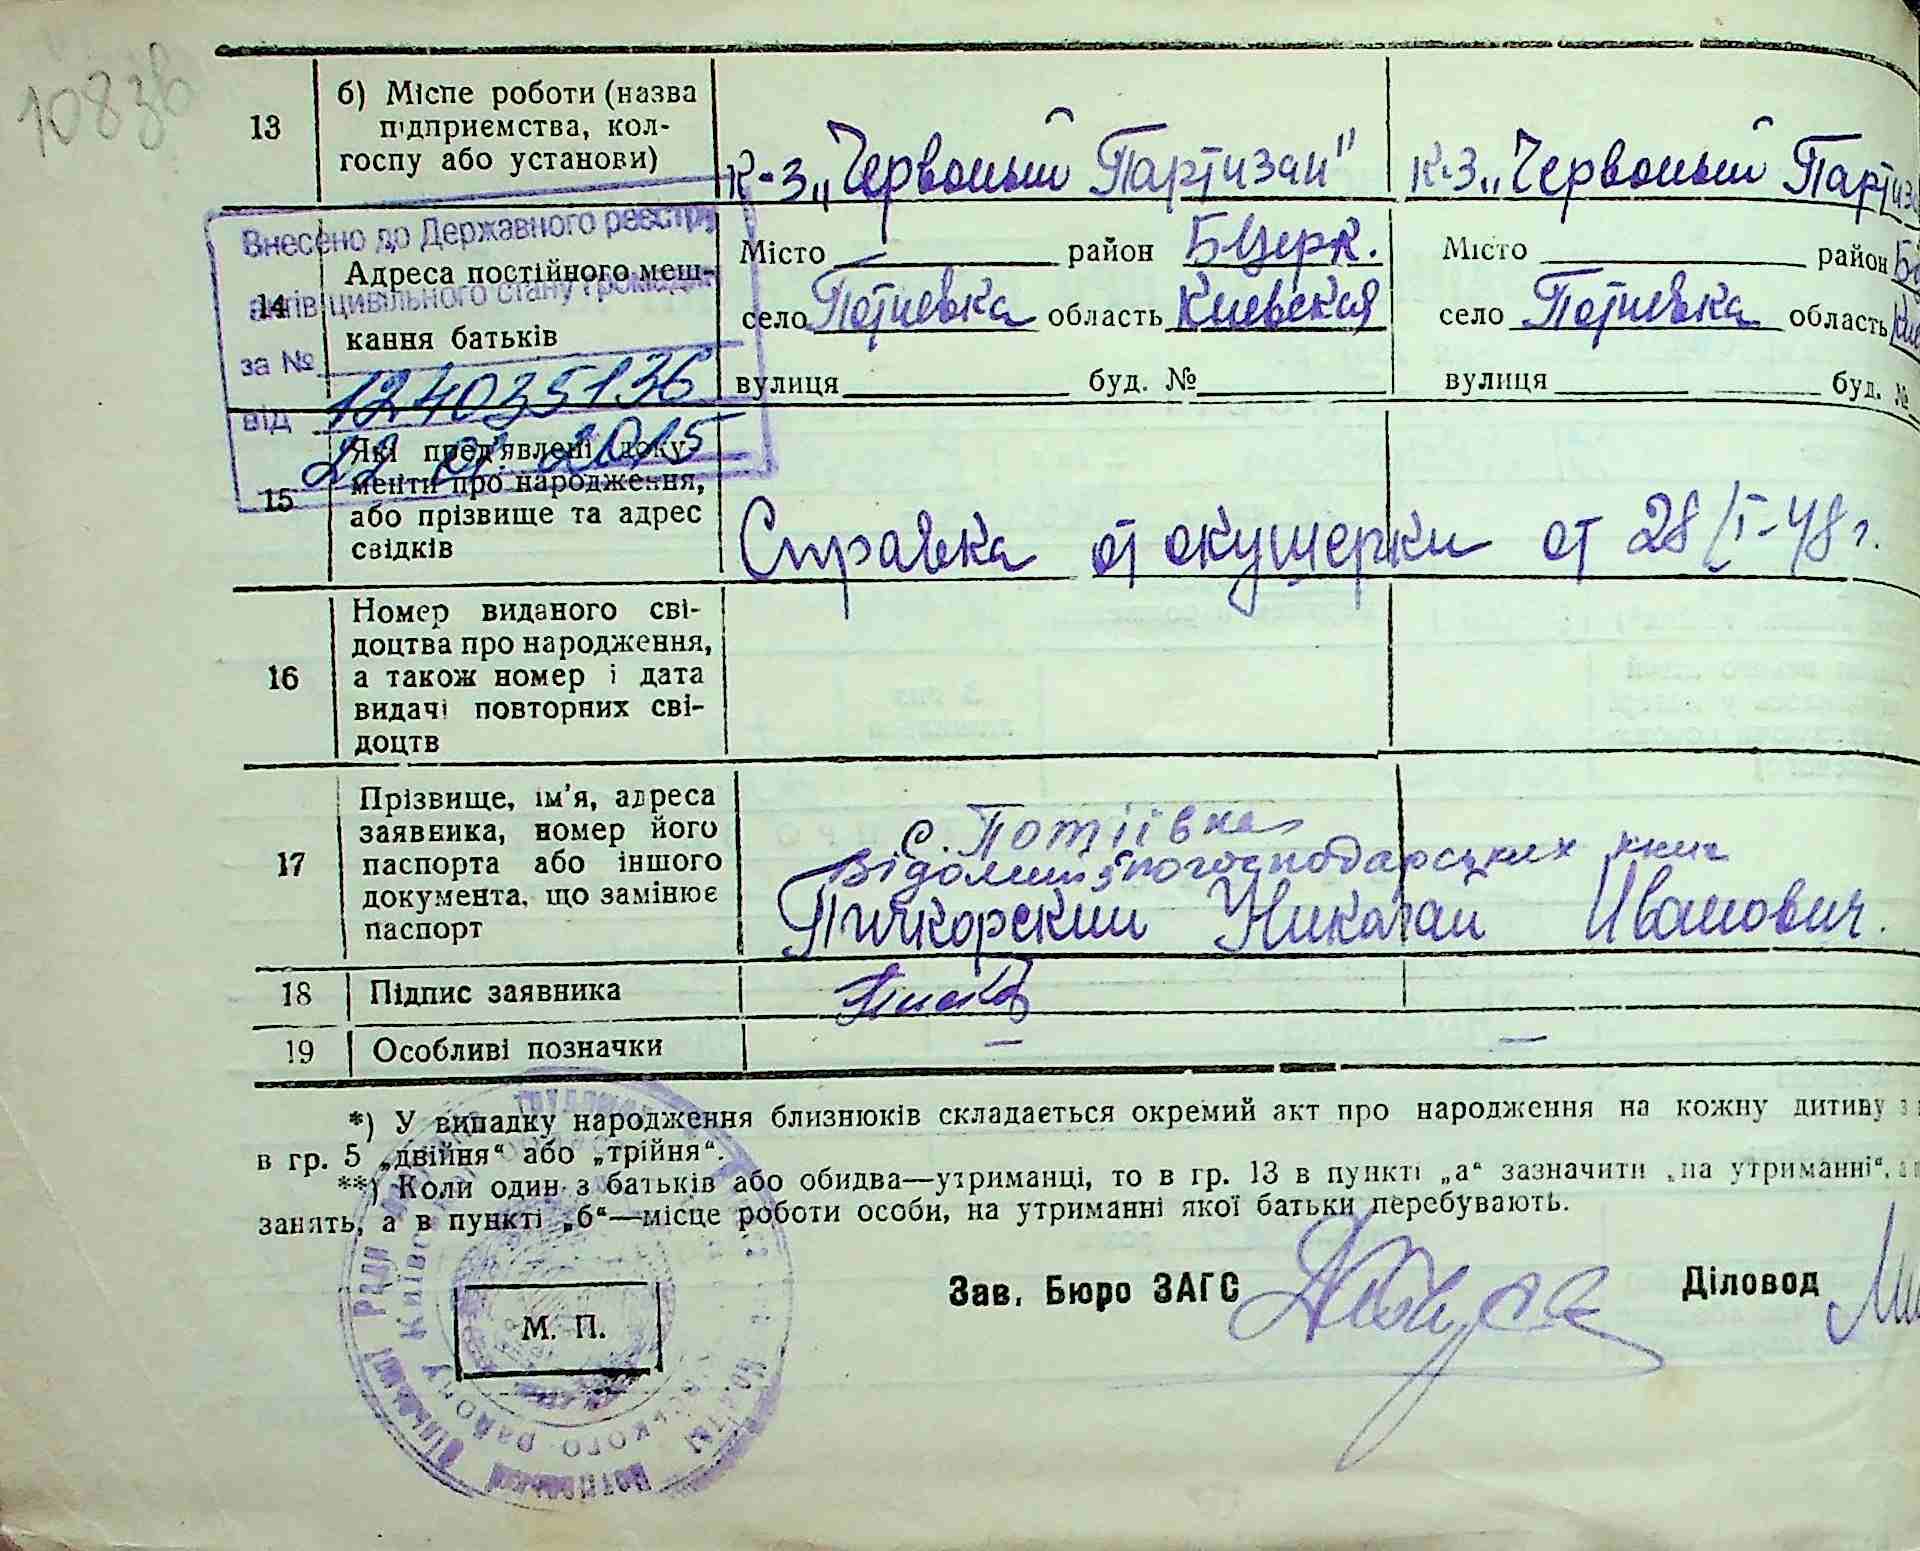 108 зв
13
б) Місце роботи (назва
підприємства, кол-
госпу або установи)
к-з „Червоный Партизан"
к-з „Червоный Партиз
Внесено до Державного реєстру
актів цивільного стану громадян
за № 124035136
від 22 01. 2015
14
Адреса постійного меш-
кання батьків
Місто район Б Церк.
село Потиевка область Киевская
вулиця буд. №
Місто район
село Потиевка область
вулиця буд. №
15
Які пред'явлені доку-
менти про народження,
або прізвище та адрес
свідків
Справка от окушерки от 28/I-48 г.
16
Номер виданого сві-
доцтва про народження,
а також номер і дата
видачі повторних сві-
доцтв
17
Прізвище, ім'я, адреса
заявника, номер його
паспорта або іншого
документа, що замінює
паспорт
с. Потіївка
Відомий з погосподарських книг
Пичкорский Николай Иванович.
18
Підпис заявника
19
Особливі позначки
— —
*) У випадку народження близнюків складається окремий акт про народження на кожну дитину з
в гр. 5 „двійня“ або „трійня“.
**) Коли один з батьків або обидва—утриманці, то в гр. 13 в пункті „а“ зазначити „на утриманні“,
занять, а в пункті „б“—місце роботи особи, на утриманні якої батьки перебувають.
Зав. Бюро ЗАГС
Діловод
М. П.